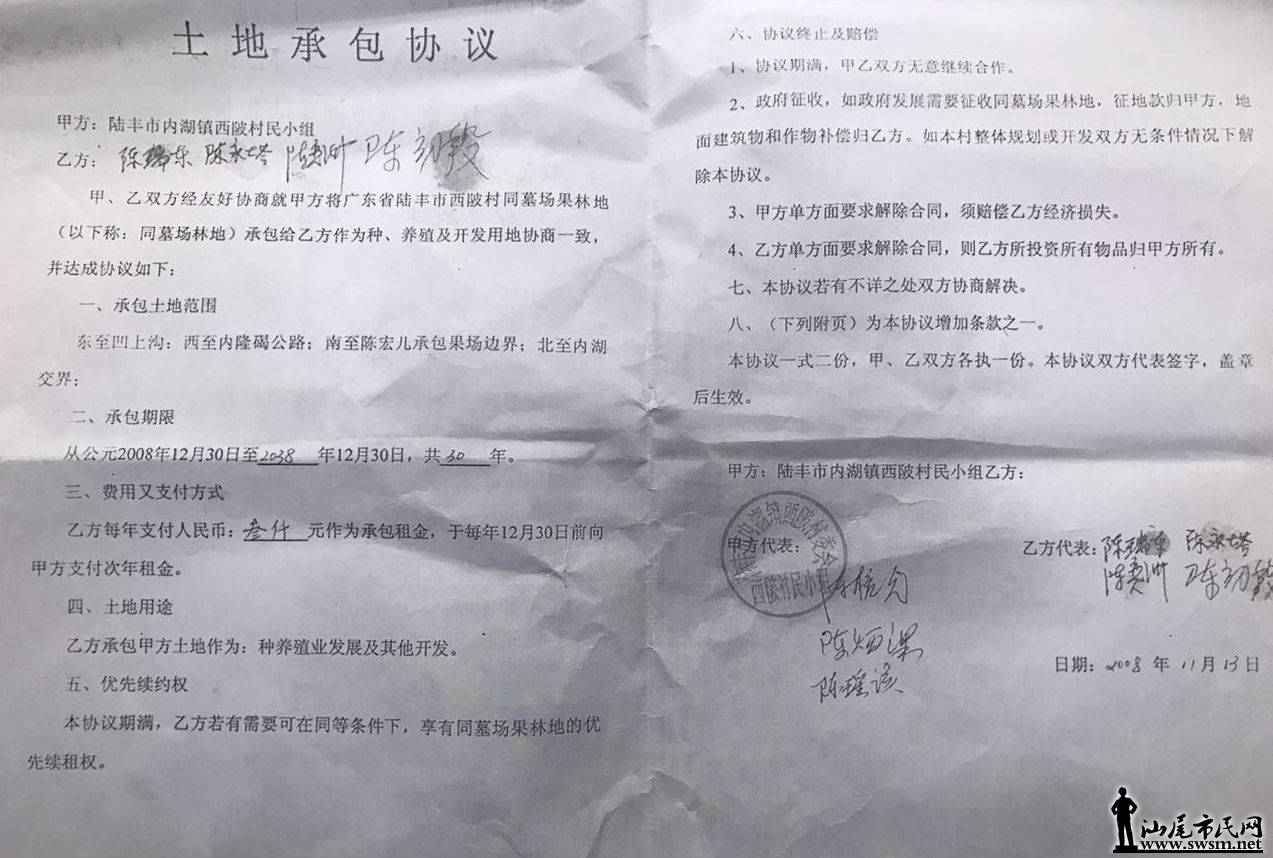 土地承包协议
甲方：陆丰市内湖镇西陂村民小组
乙方：陈瑞东 陈永塔 陈 陈初毅
甲、乙双方经友好协商就甲方将广东省陆丰市西陂村同墓场果林地
（以下称：同墓场林地）承包给乙方作为种、养殖及开发用地协商一致，
并达成协议如下：
一、承包土地范围
东至凹上沟；西至内隆碣公路；南至陈宏儿承包果场边界；北至内湖
交界；
二、承包期限
从公元2008年12月30日至2038年12月30日，共30年。
三、费用又支付方式
乙方每年支付人民币：叁仟元作为承包租金，于每年12月30日前向
甲方支付次年租金。
四、土地用途
乙方承包甲方土地作为：种养殖业发展及其他开发。
五、优先续约权
本协议期满，乙方若有需要可在同等条件下，享有同墓场果林地的优
先续租权。
六、协议终止及赔偿
1、协议期满，甲乙双方无意继续合作。
2、政府征收，如政府发展需要征收同墓场果林地，征地款归甲方，地
面建筑物和作物补偿归乙方。如本村整体规划或开发双方无条件情况下解
除本协议。
3、甲方单方面要求解除合同，须赔偿乙方经济损失。
4、乙方单方面要求解除合同，则乙方所投资所有物品归甲方所有。
七、本协议若有不详之处双方协商解决。
八、（下列附页）为本协议增加条款之一。
本协议一式二份，甲、乙双方各执一份。本协议双方代表签字，盖章
后生效。
甲方：陆丰市内湖镇西陂村民小组乙方：
内湖镇西陂村委会
西陂村民小组
甲方代表：
陈炳课
陈瑶谈
乙方代表：陈瑞东 陈永塔
陈 陈初毅
日期：2008 年 11月13日
汕尾市民网
www.swsm.net